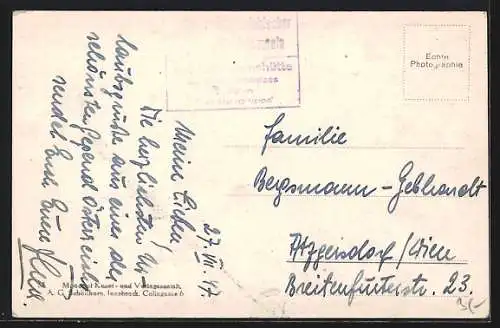 27. VII. 47.
Meine Lieben!
Die herzlichsten Ur-
laubsgrüße aus einer der
schönsten Gegend Österreichs
sendet Euch Euer
Echte
Photographie
Familie
Bergsmann-Gebhardt
Atzgersdorf/Wien
Breitenfurterstr. 23.
Kunst- und Verlagsanstalt
A. G. Schöllhorn, Innsbruck, Colingasse 6